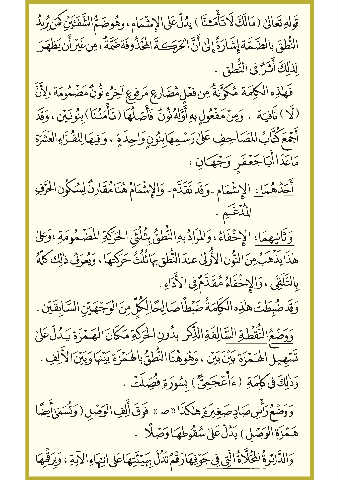 قوله تعالى (مَالَكَ لَا تَأْمَ۫نَّا) يدل على الإشمام ، وهو ضم الشفتين كمن يريد
النطق بالضمة إشارة إلى أن الحركة المحذوفة ضمة ، من غير أن يظهر
لذلك أثر في النطق .
فهذه الكلمة مكونة من فعل مضارع مرفوع آخره نون مضمومة ، لأن
(لا) نافية . ومن مفعول به أوله نون فأصلها (تأمننا) بنونين ، وقد
أجمع كتاب المصاحف على رسمها بنون واحدة ، وفيها للقراء العشرة
ماعدا أبا جعفر وجهان :
أحدهما : الإشمام - وقد تقدم - والإشمام هنا مقارن لسكون الحرف
المدغم .
وثانيهما : الإخفاء ، والمراد به النطق بثلثي الحركة المضمومة ، وعلى
هذا يذهب من النون الأولى عند النطق بها ثلث حركتها ، ويعرف ذلك كله
بالتلقي ، والإخفاء مقدم في الأداء .
وقد ضبطت هذه الكلمة ضبطا صالحا لكل من الوجهين السابقين .
ووضع النقطة السالفة الذكر بدون الحركة مكان الهمزة يدل على
تسهيل الهمزة بين بين ، وهو هنا النطق بالهمزة بينها وبين الألف .
وذلك في كلمة (ءَا۬عْجَمِيٌّ) بسورة فصلت .
ووضع رأس صاد صغيرة هكذا « صـ » فوق ألف الوصل (وتسمى أيضا
همزة الوصل) يدل على سقوطها وصلا .
والدائرة المحلاة التي في جوفها رقم تدل بهيئتها على انتهاء الآية ، وبرقمها